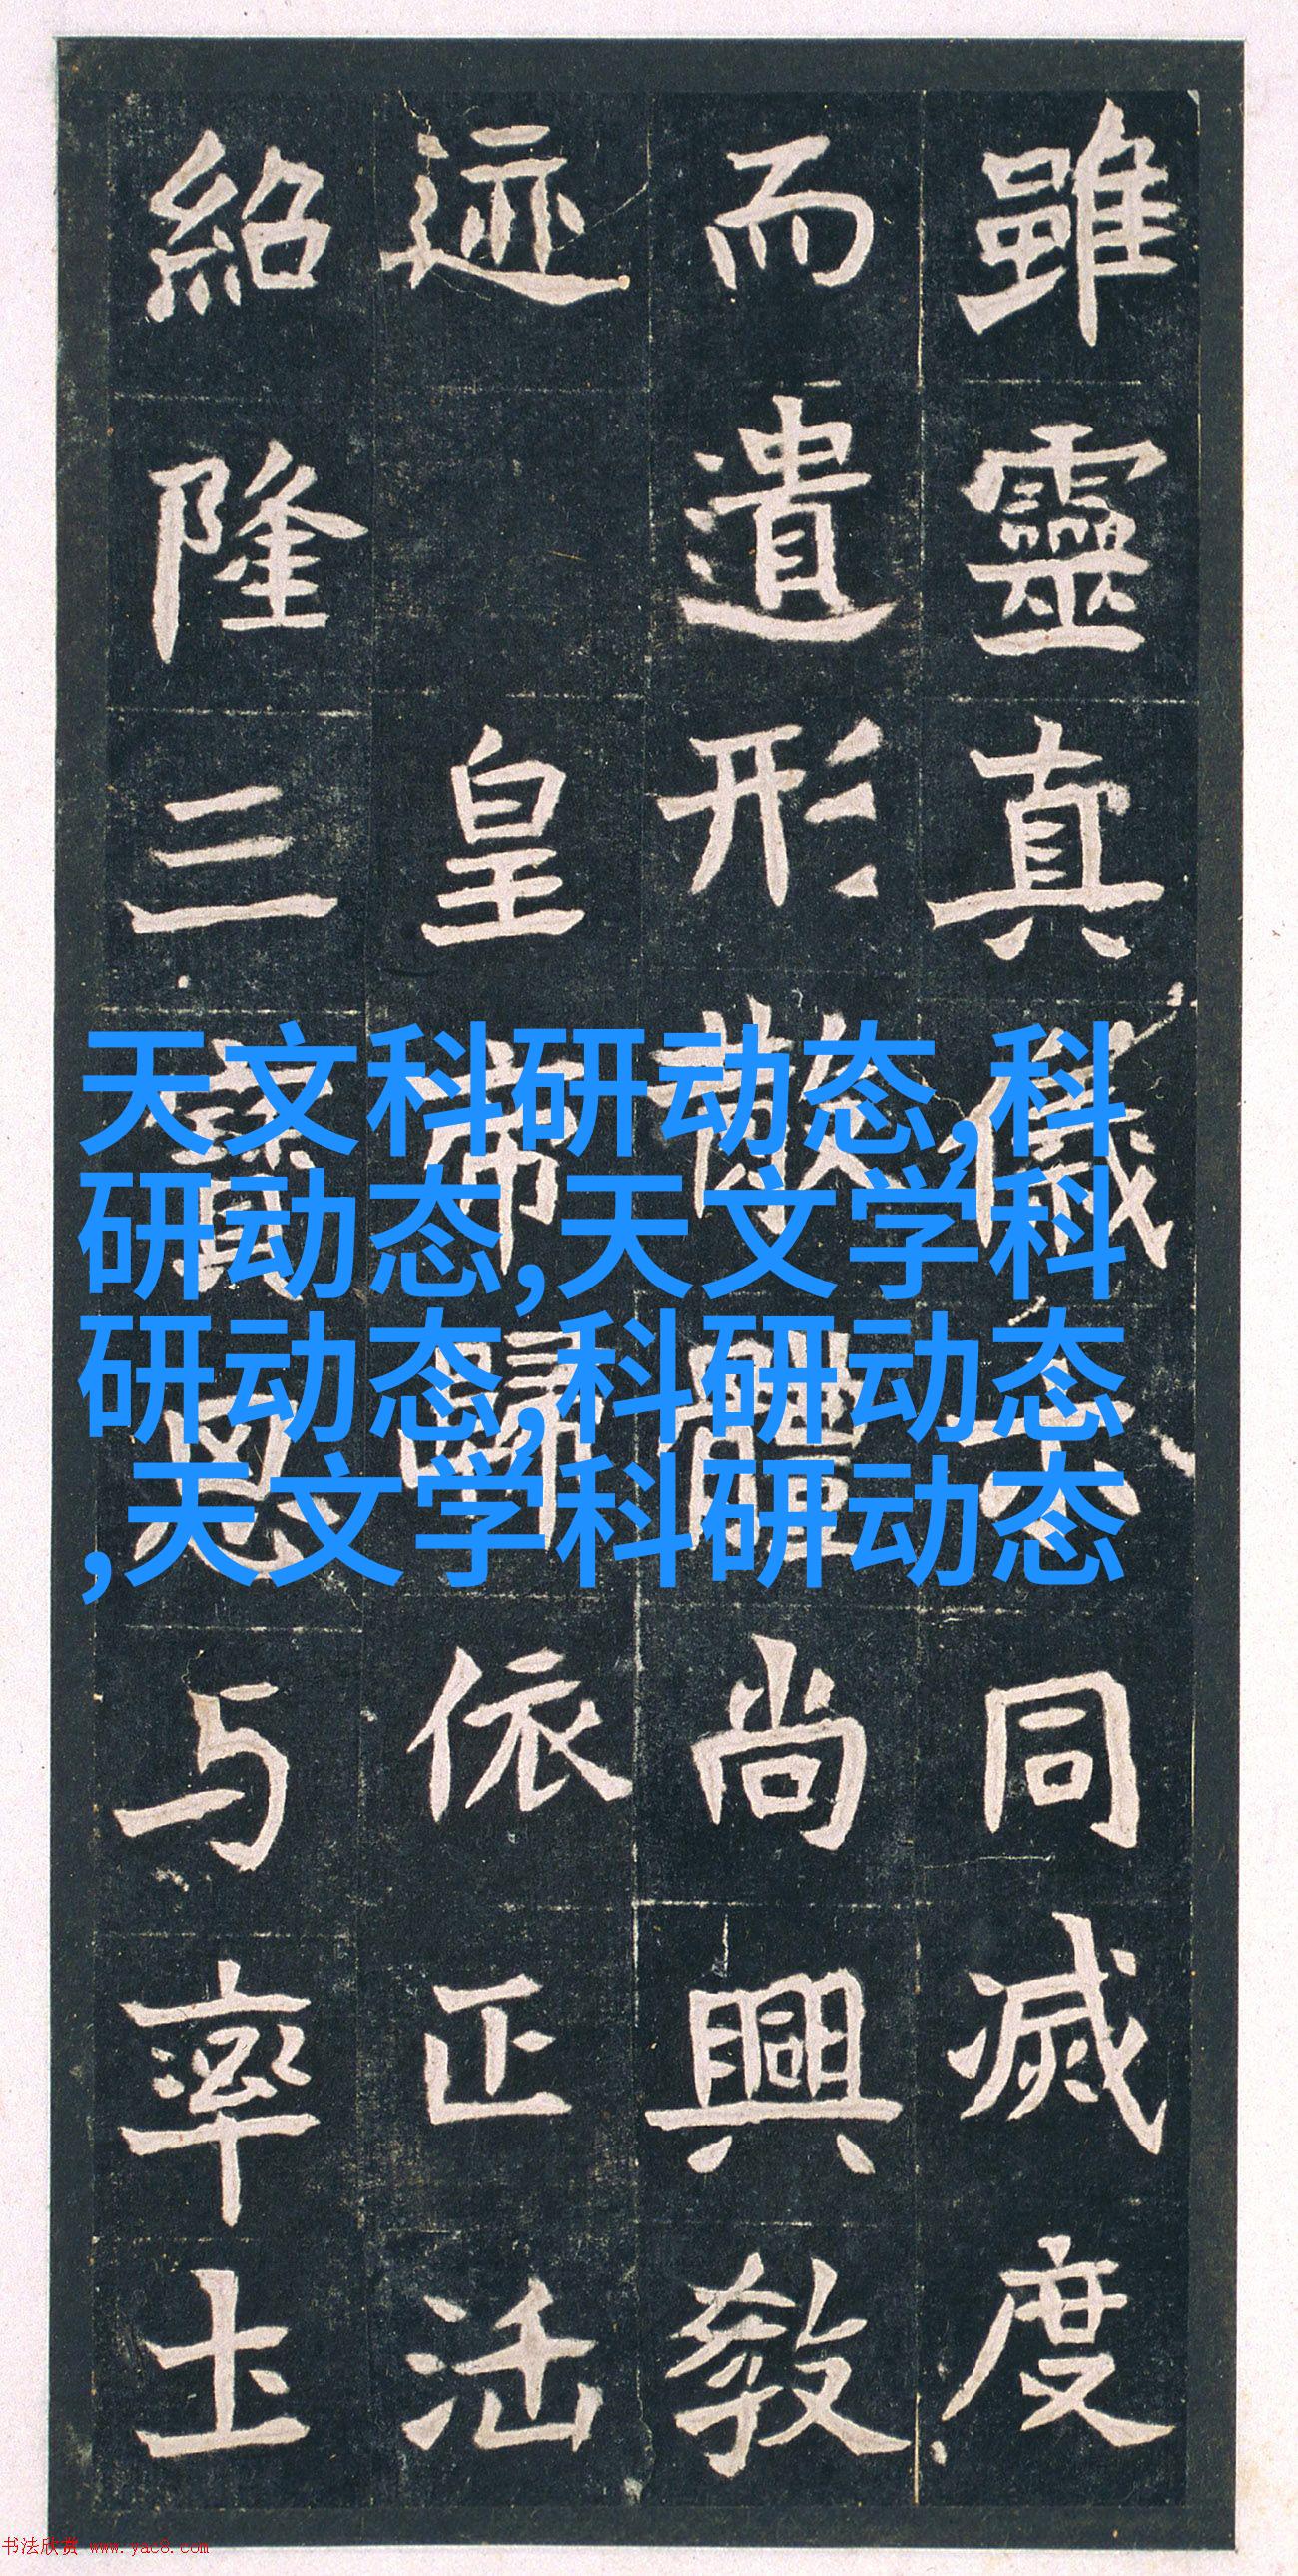 雖靈真儀不同滅度
而遺形散體尚興教
迹
皇帝歸依正法
紹隆三寶思与率土
天文科研动态,科
研动态,天文学科
研动态,科研动态
,天文学科研动态
书法欣赏 www.yac8.com